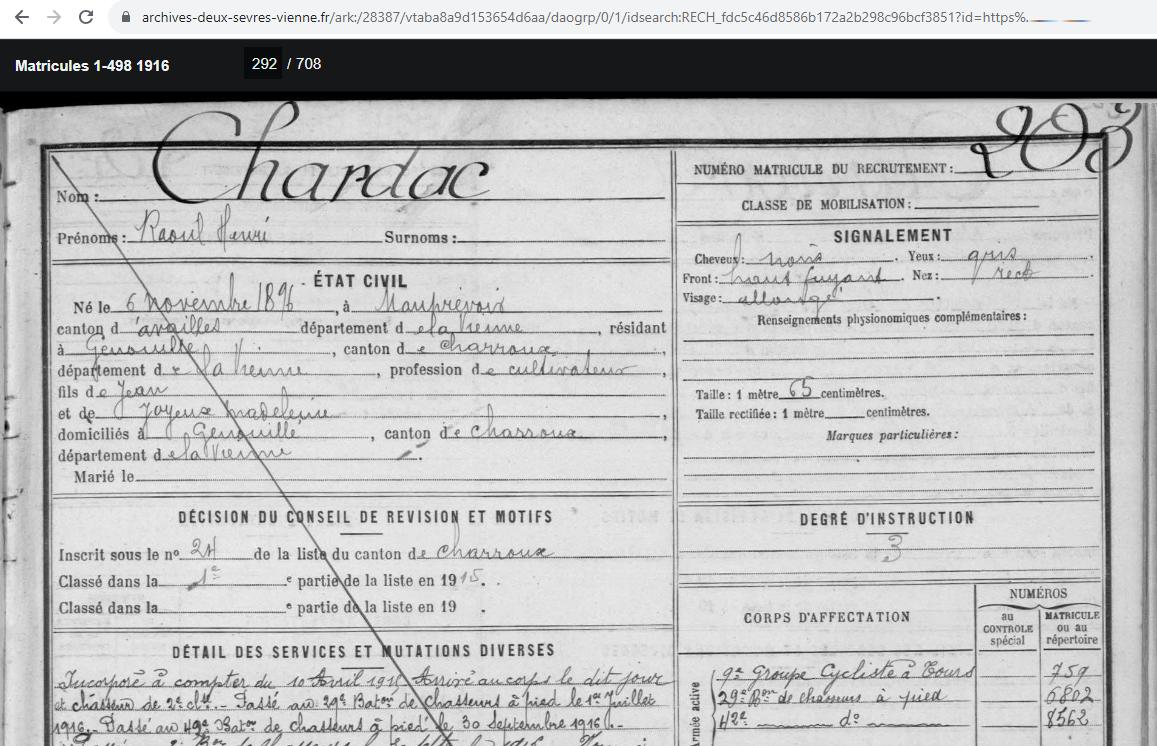 archives-deux-sevres-vienne.fr/ark:/28387/vtaba8a9d153654d6aa/daogrp/0/1/idsearch:RECH_fdc5c46d8586b172a2b298c96bcf3851?id=https%.
Matricules 1-498 1916
292 / 708
Nom : Chardac
Prénoms : Raoul Henri Surnoms :
ÉTAT CIVIL
Né le 6 novembre 1896, à Mauprévoir
canton d'availles département de la Vienne, résidant
à Genouillé, canton de Charroux,
département de la Vienne, profession de cultivateur,
fils de Jean
et de Joyeux Madeleine,
domiciliés à Genouillé, canton de Charroux,
département de la Vienne.
Marié le
DÉCISION DU CONSEIL DE REVISION ET MOTIFS
Inscrit sous le nº 24 de la liste du canton de Charroux
Classé dans la 1e e partie de la liste en 1915.
Classé dans la e partie de la liste en 19 .
DÉTAIL DES SERVICES ET MUTATIONS DIVERSES
Incorporé à compter du 10 Avril 1916 Arrivé au corps le dit jour
et chasseur de 2e cl. - Passé au 29e Baton de chasseurs à pied le 1er Juillet
1916. - Passé au 49e Baton de chasseurs à pied le 30 septembre 1916.
NUMÉRO MATRICULE DU RECRUTEMENT : 203
CLASSE DE MOBILISATION :
SIGNALEMENT
Cheveux : noirs . Yeux : gris
Front : haut fuyant . Nez : rect
Visage : allongé .
Renseignements physionomiques complémentaires :
Taille : 1 mètre 65 centimètres.
Taille rectifiée : 1 mètre centimètres.
Marques particulières :
DEGRÉ D'INSTRUCTION
3
CORPS D'AFFECTATION
NUMÉROS
au CONTROLE spécial
MATRICULE ou au répertoire
Armée active
9e Groupe Cycliste à Tours 759
29e Bon de chasseurs à pied 6802
42e do 8562